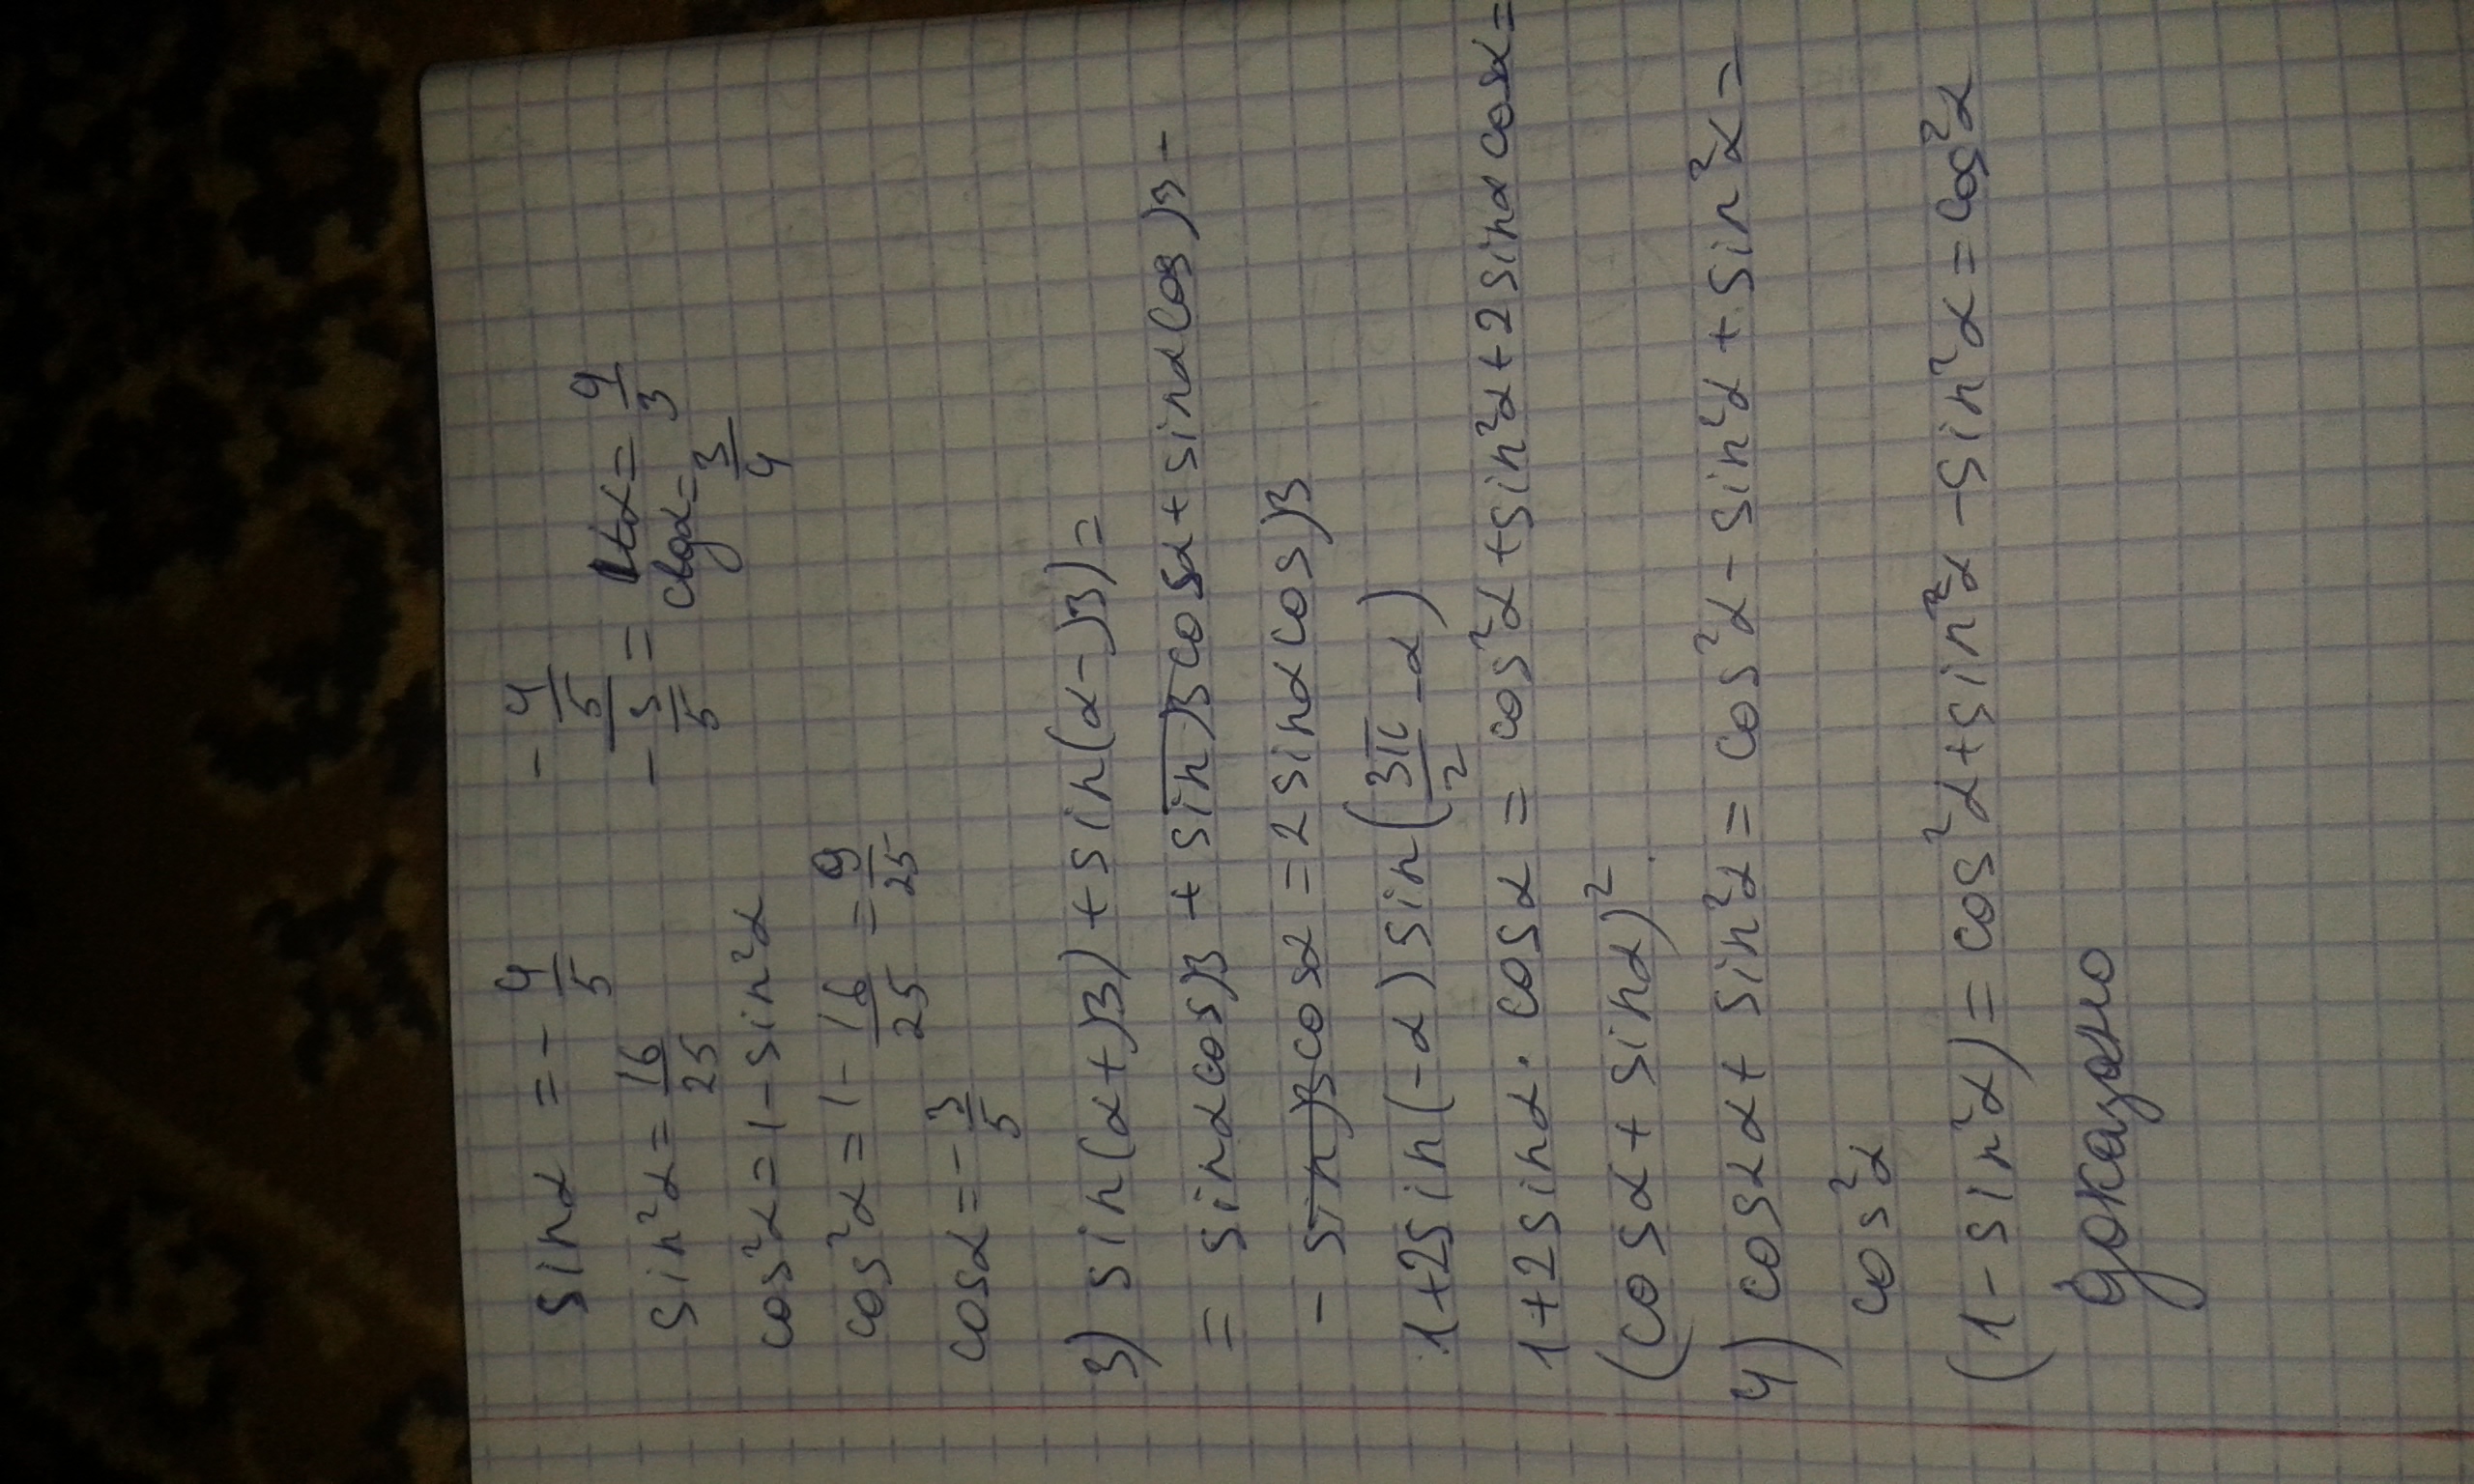 sinα = -4/5
sin²α = 16/25
cos²α = 1 - sin²α
cos²α = 1 - 16/25 = 9/25
cosα = -3/5
-4/5 / -3/5 = tα = 4/3
ctgα = 3/4
3) sin(α+β) + sin(α-β) =
= sinαcosβ + sinβcosα + sinαcosβ -
- sinβcosα = 2sinαcosβ
1+2sin(-α)sin(3π/2 -α)
1+2sinα·cosα = cos²α+sin²α+2sinαcosα=
(cosα + sinα)²
4) cosα+ sin²α = cos²α - sin²α + sin²α =
cos²α
(1 - sin²α) = cos²α+sin²α -sin²α = cos²α
доказано